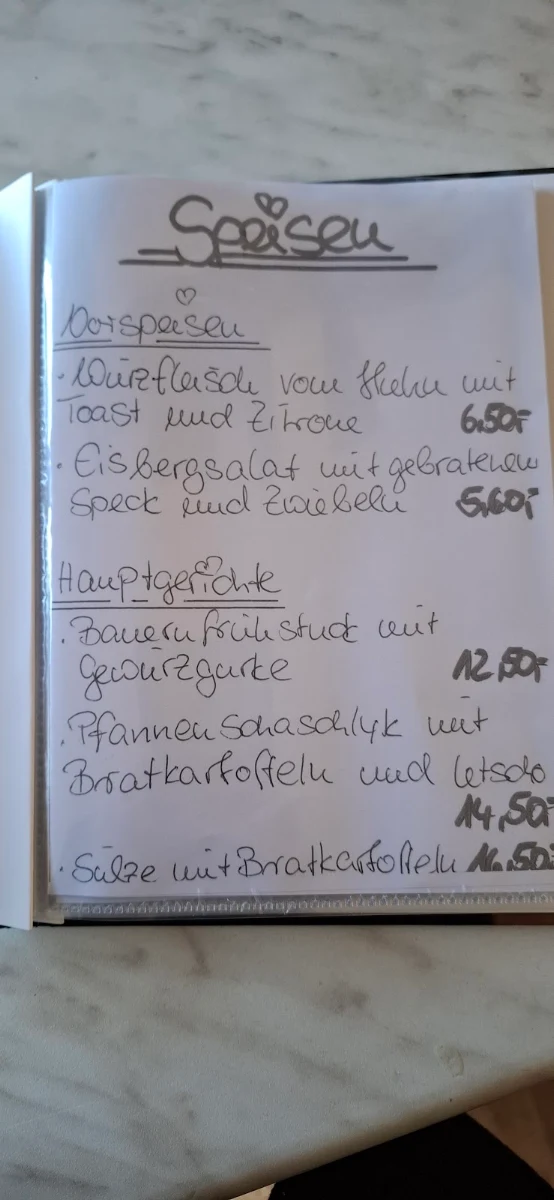 Speisen
Vorspeisen
· Würzfleisch vom Huhn mit
Toast und Zitrone 6,50,-
· Eisbergsalat mit gebratenem
Speck und Zwiebeln 5,60,-
Hauptgerichte
· Bauernfrühstück mit
Gewürzgurke 12,50,-
· Pfannenschaschlyk mit
Bratkartoffeln und Letscho
14,50,-
· Sülze mit Bratkartoffeln